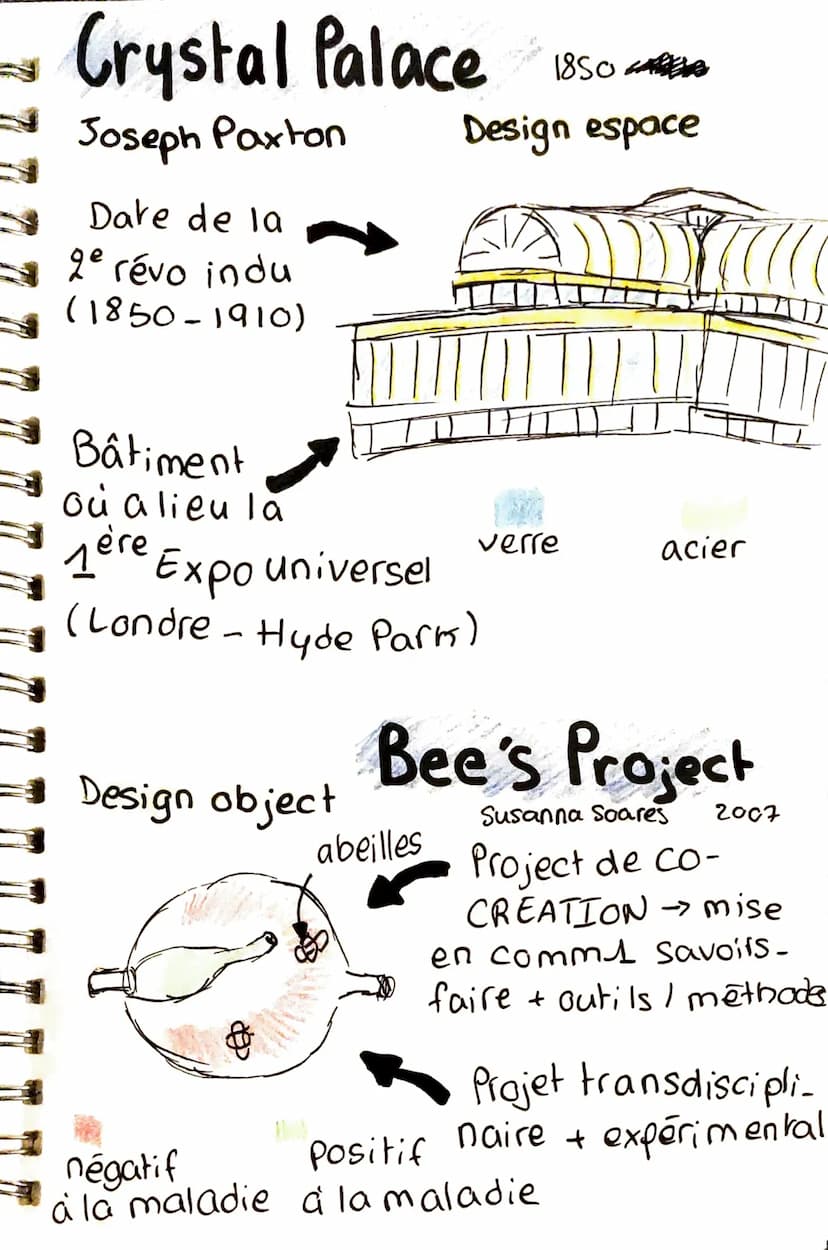 Crystal Palace 1850
Joseph Paxton
Design espace
Date de la
2e révo indu
(1850-1910)
Bâtiment
où a lieu la
1ère Expo universel
(Londre - Hyde Park)
verre
acier
Bee's Project
Susanna Soares 2007
Design object
abeilles
Project de co-
CREATION → mise
en comm1 savoirs-
faire + outils / méthods
Projet transdiscipli-
naire + expérimental
négatif
à la maladie
positif
à la maladie